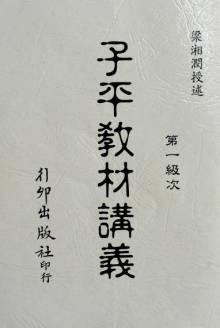 梁湘潤授述
第一級次
子平教材講義
行卯出版社印行